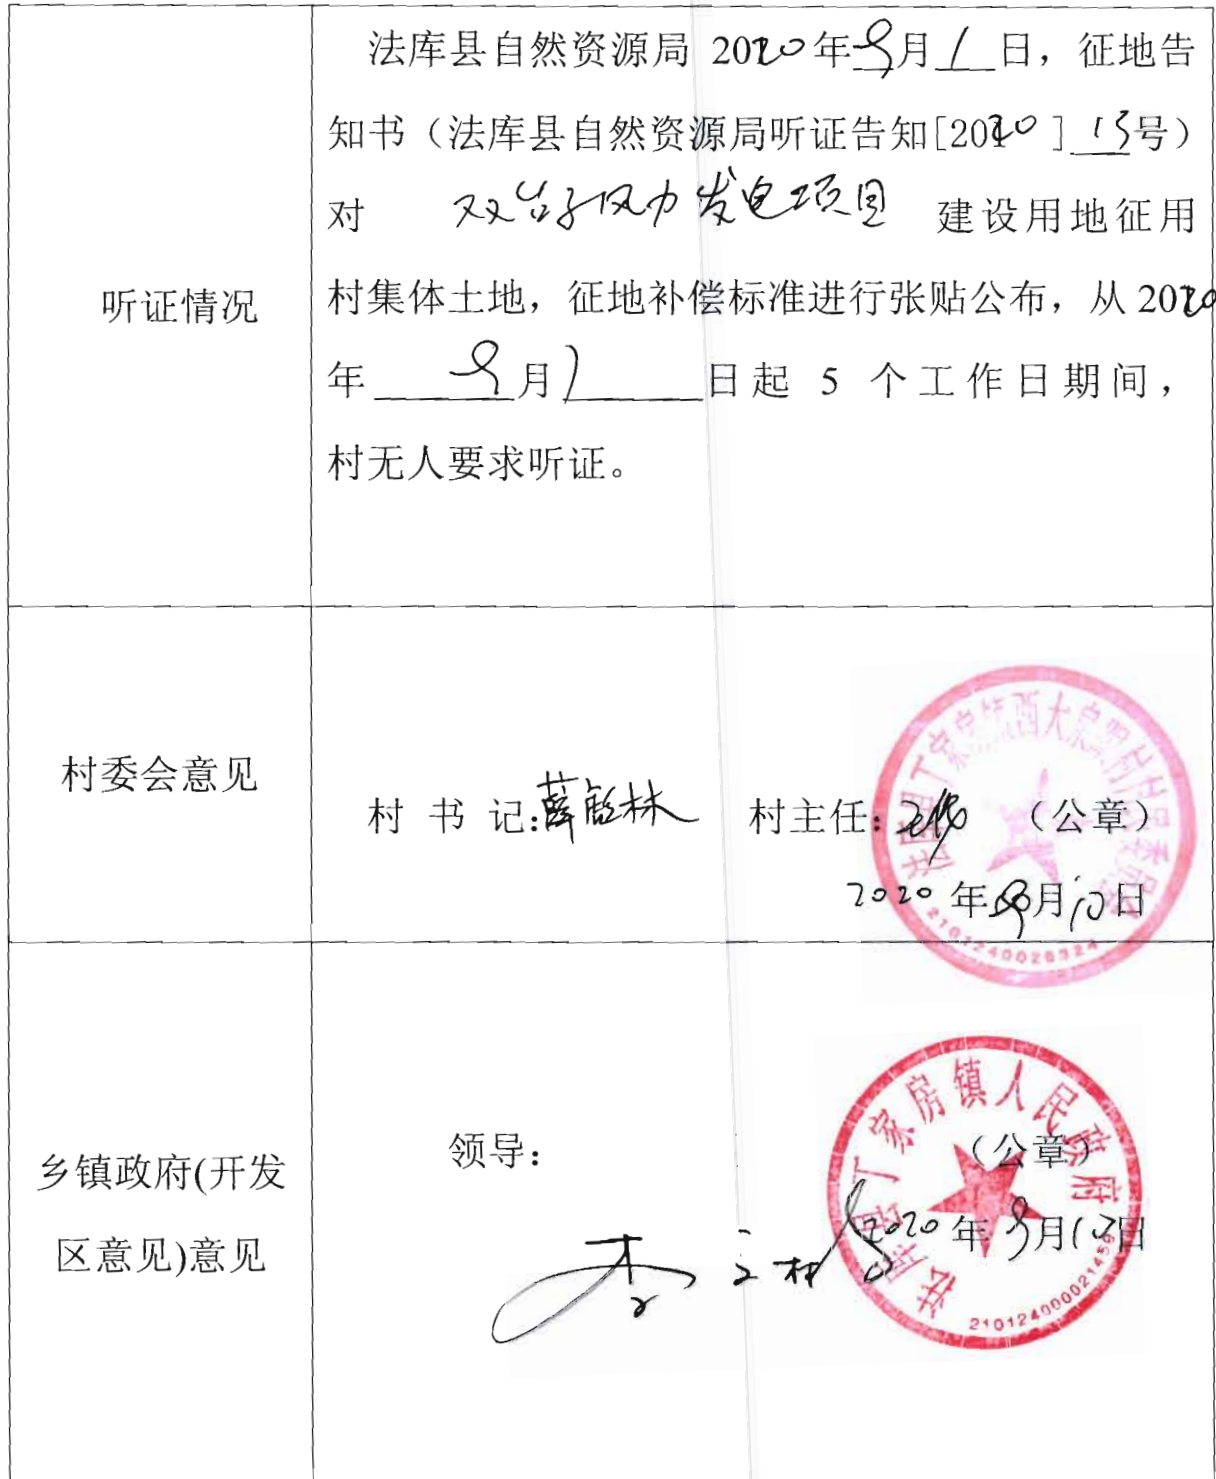 法库县自然资源局 2020年9月1日，征地告
知书（法库县自然资源局听证告知[2020]13号）
对 双台子风力发电项目 建设用地征用
听证情况
村集体土地，征地补偿标准进行张贴公布，从2020
年9月1日起 5 个工作日期间，
村无人要求听证。
村委会意见
村 书 记:薛 林 村主任: （公章）
2020年9月10日
2101240026324
乡镇政府(开发
区意见)意见
领导： （公章）
2020年9月10日
法库县丁家房镇人民政府
210124000021459